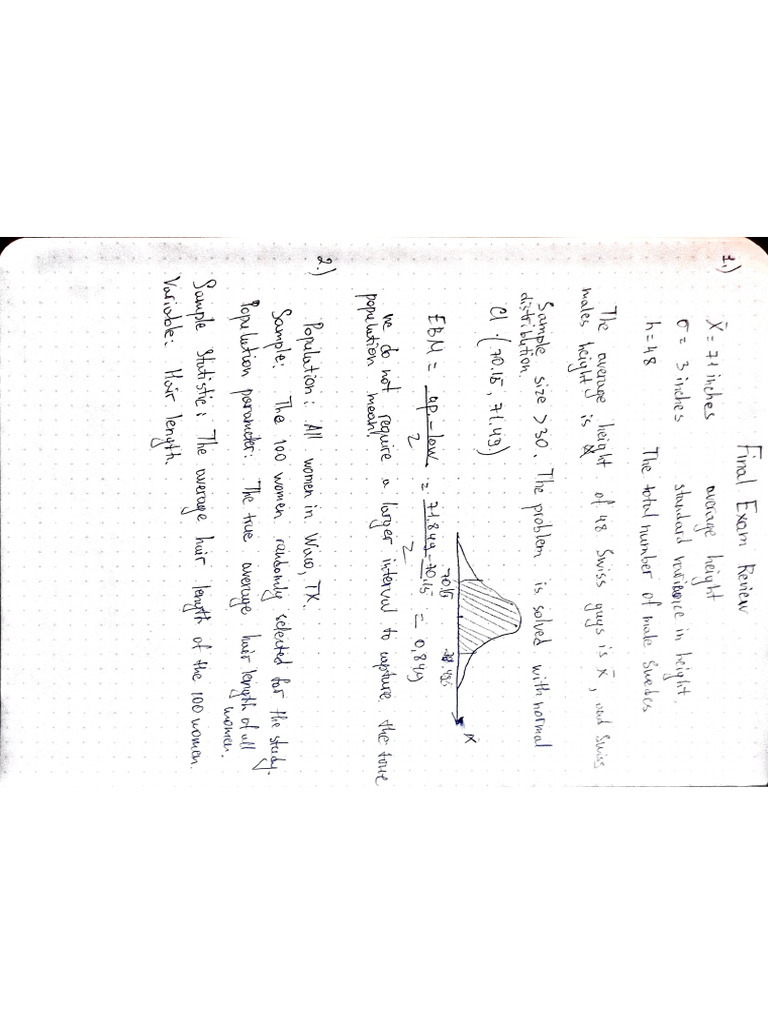 Final Exam Review
1.) x̄ = 71 inches average height
σ = 3 inches standard variance in height.
n = 48 The total number of male Swedes
The average height of 48 Swiss guys is x̄, and Swiss
males height is
Sample size > 30. The problem is solved with normal
distribution.
CI (70.15, 71.49)
70.15
x̄
EBM = up - low / 2 = 71.849 - 70.15 / 2 = 0.849
we do not require a larger interval to capture the true
population mean!
2.) Population: All women in Waco, TX.
Sample: The 100 women randomly selected for the study.
Population parameter: The true average hair length of all
women.
Sample Statistic: The average hair length of the 100 women.
Variable: Hair length.